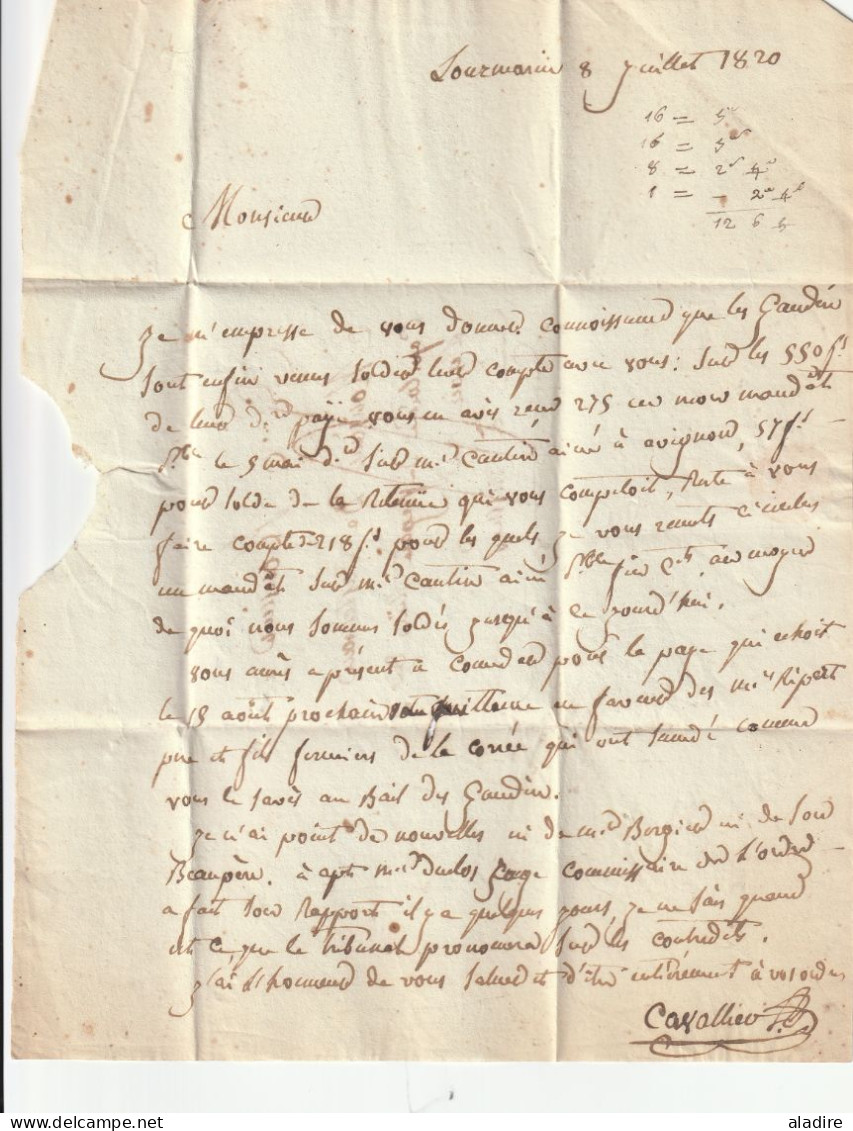 Lourmarin 8 juillet 1820
16 = 5
16 = 5
8 = 2 4
1 = - 2 4
12 6
Monsieur
Je m'empresse de vous donner connoissance que les Gaudin
sont enfin venus solder leur compte avec vous: sur les 550 f.s
de leur d.re paye vous en avés reçu 275 en mon mandat
p.ble le 5 mai d.r sur m.r Cautin ainé à avignon, 57 f.s
pour solde de la Retenue qui vous competoit, Reste à vous
faire compte de 218 f.s pour les quels je vous remets ci inclus
un mandat sur m.r Cautin ainé p.ble fin c.t, au moyen
de quoi nous sommes soldés jusqu'à ce jourd'hui.
vous aurés apresent à compter pour la paye qui echoit
le 15 août prochain en faveur des m.rs Ripert
pere et fils fermiers de la corrée qui ont succédé comme
vous le savés au Bail des Gaudin.
Je n'ai point de nouvelles ni de m.r Bergier ni de son
Beaupère. à apt m.r duclos juge commissaire de l'ordre
a fait son Rapport il y a quelques jours, je ne sais quand
est ce que le tribunal prononcera sur les contredits.
J'ai l'honneur de vous saluer et d'être entièrement à vos ordres
Cavallier
aladire